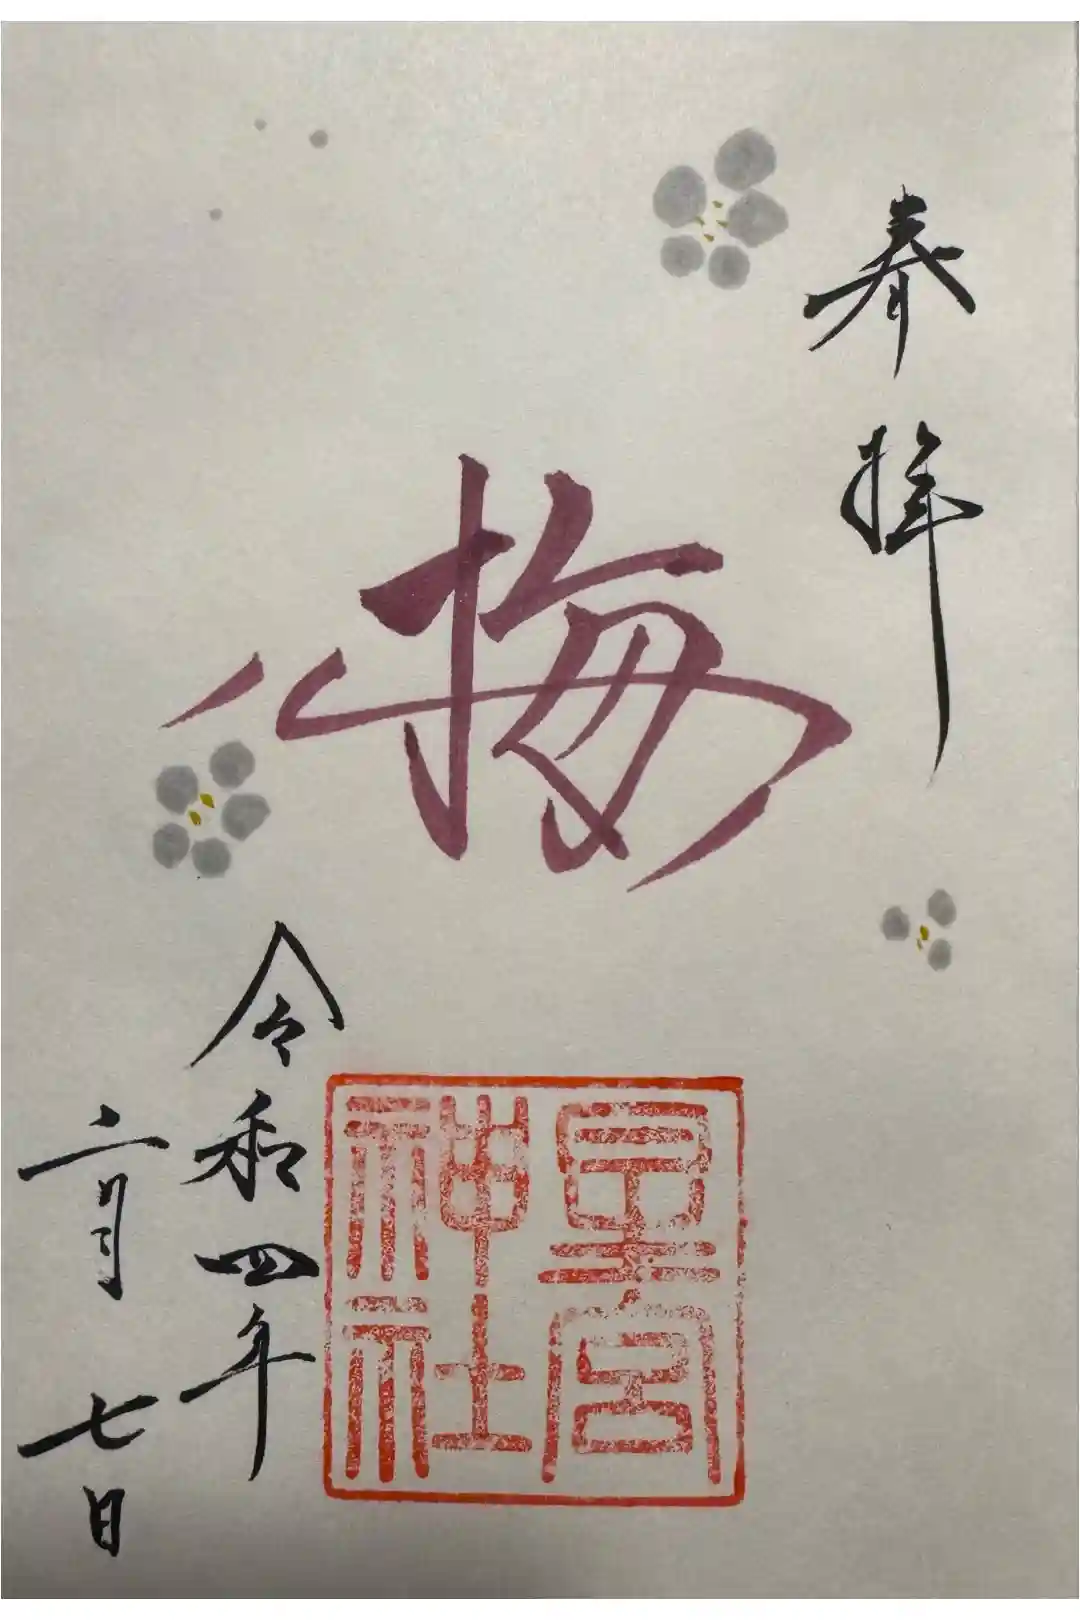 奉拝
梅
宮
神社
令和四年
二月七日